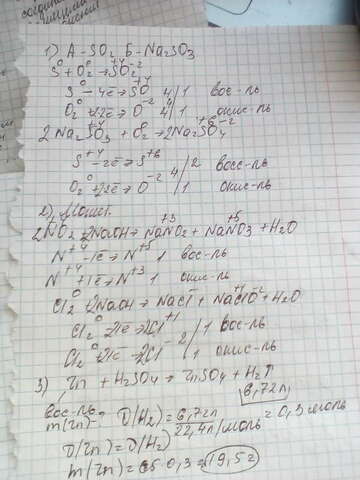 1) А - SO₂ Б - Na₂SO₃
S⁰ + O₂⁰ → S⁺⁴O₂⁻²
S⁰ - 4e → S⁺⁴ 4 | 1 вос-ль
O₂⁰ + 2e → O⁻² 4 | 1 окис-ль
2Na₂S⁺⁴O₃ + O₂⁰ → 2Na₂S⁺⁶O₄⁻²
S⁺⁴ - 2e → S⁺⁶ 4 | 2 восс-ль
O₂⁰ + 2e → O⁻² | 1 окис-ль
2)
2N⁺⁴O₂ + 2NaOH → NaN⁺³O₂ + NaN⁺⁵O₃ + H₂O
N⁺⁴ - 1e → N⁺⁵ 1 вос-ль
N⁺⁴ + 1e → N⁺³ 1 окис-ль
Cl₂⁰ + 2NaOH → NaCl⁻ + NaCl⁺¹O⁻² + H₂O
Cl₂⁰ - 2e → 2Cl⁺¹ 2 | 1 вос-ль
Cl₂⁰ + 2e → 2Cl⁻ | 1 окис-ль
3) Zn + H₂SO₄ → ZnSO₄ + H₂↑
6,72л
вос-ль
m(Zn)-? υ(H₂) = 6,72л / 22,4л/моль = 0,3 моль
υ(Zn) = υ(H₂)
m(Zn) = 65·0,3 = 19,5г